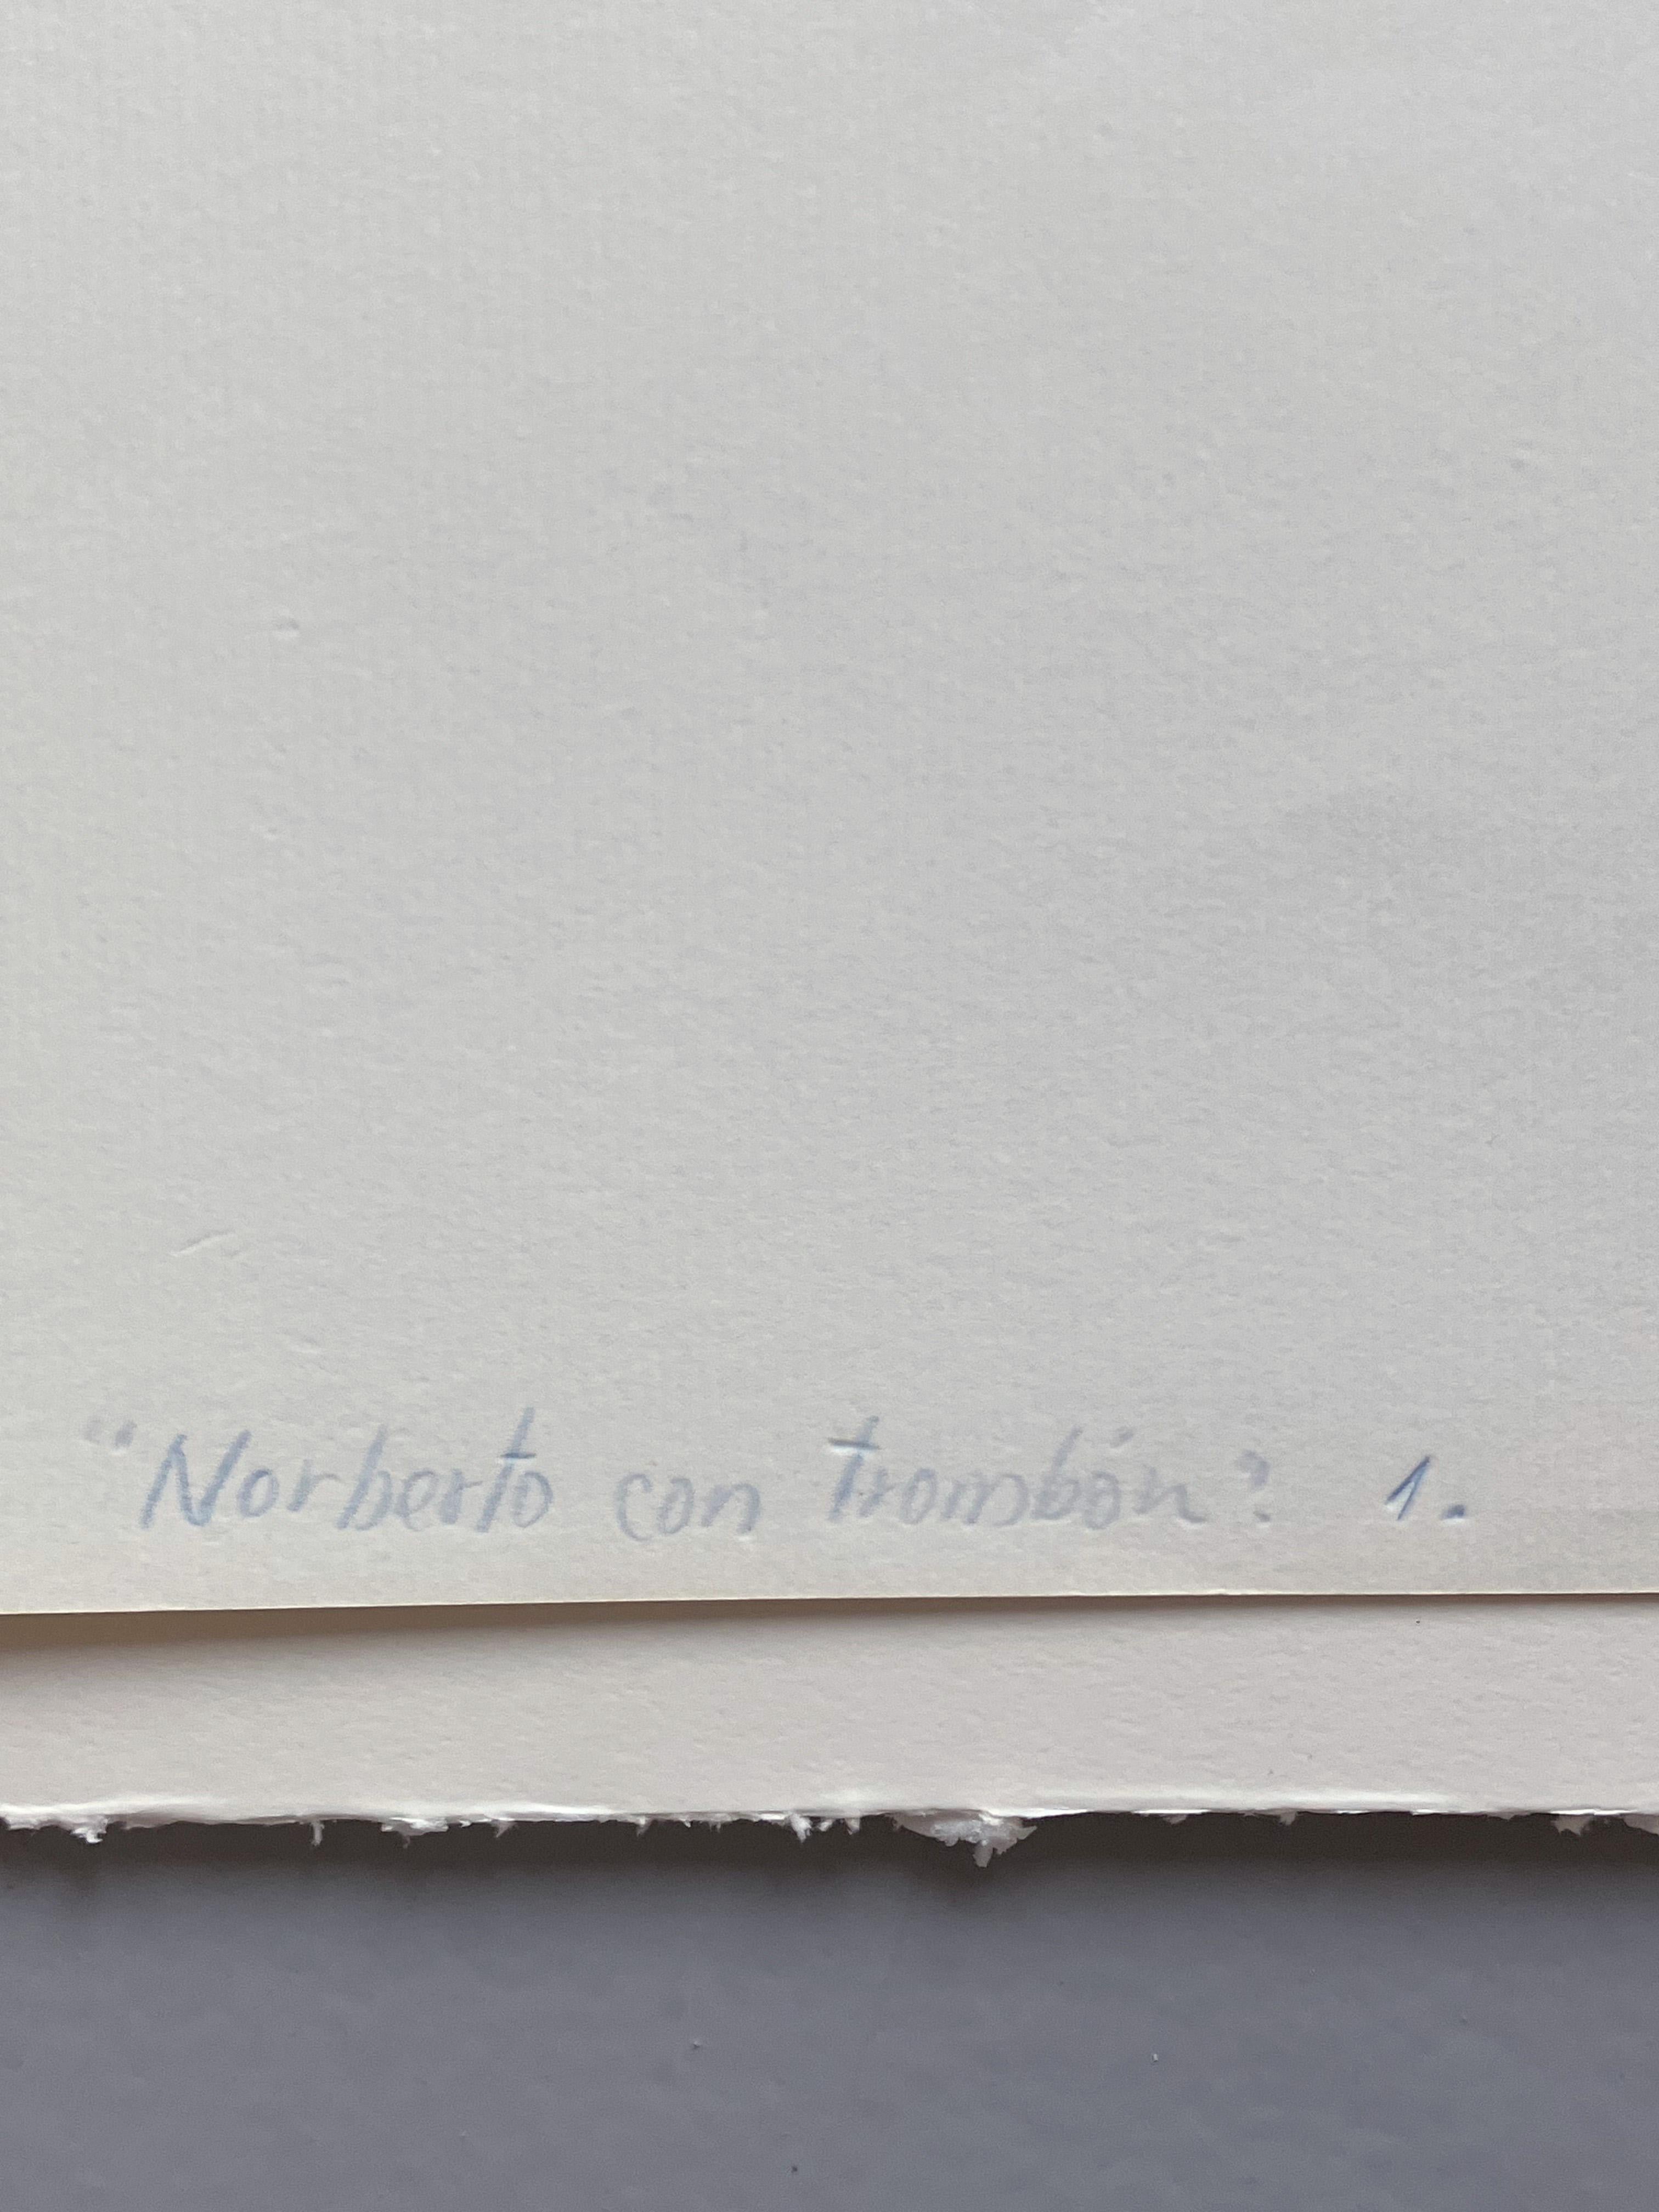 "Norberto con trombón". 1.